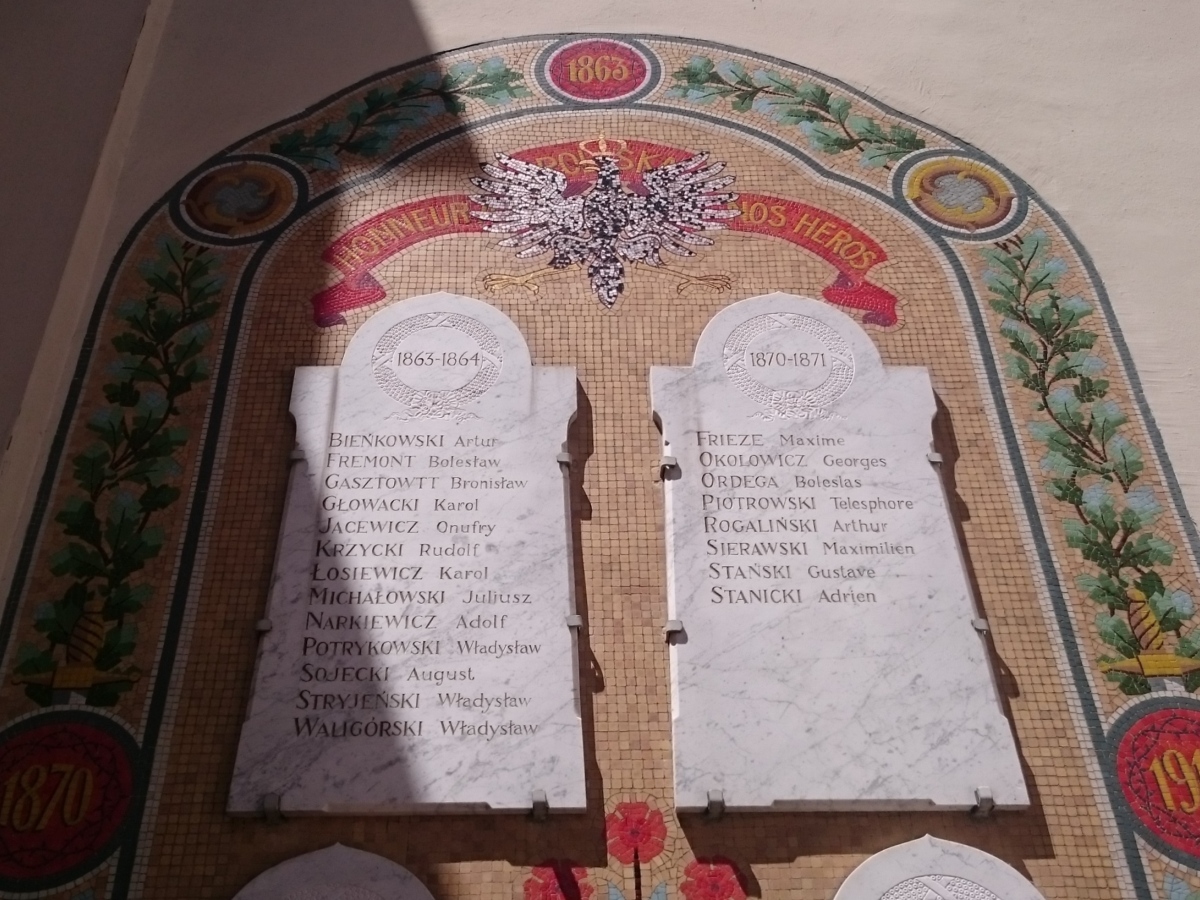 1863
POLSKA
HONNEUR
NOS HEROS
1863-1864
BIEŃKOWSKI Artur
FREMONT Bolesław
GASZTOWTT Bronisław
GŁOWACKI Karol
JACEWICZ Onufry
KRZYCKI Rudolf
ŁOSIEWICZ Karol
MICHAŁOWSKI Juliusz
NARKIEWICZ Adolf
POTRYKOWSKI Władysław
SOJECKI August
STRYJEŃSKI Władysław
WALIGÓRSKI Władysław
1870-1871
FRIEZE Maxime
OKOLOWICZ Georges
ORDEGA Boleslas
PIOTROWSKI Telesphore
ROGALIŃSKI Arthur
SIERAWSKI Maximilien
STAŃSKI Gustave
STANICKI Adrien
1870